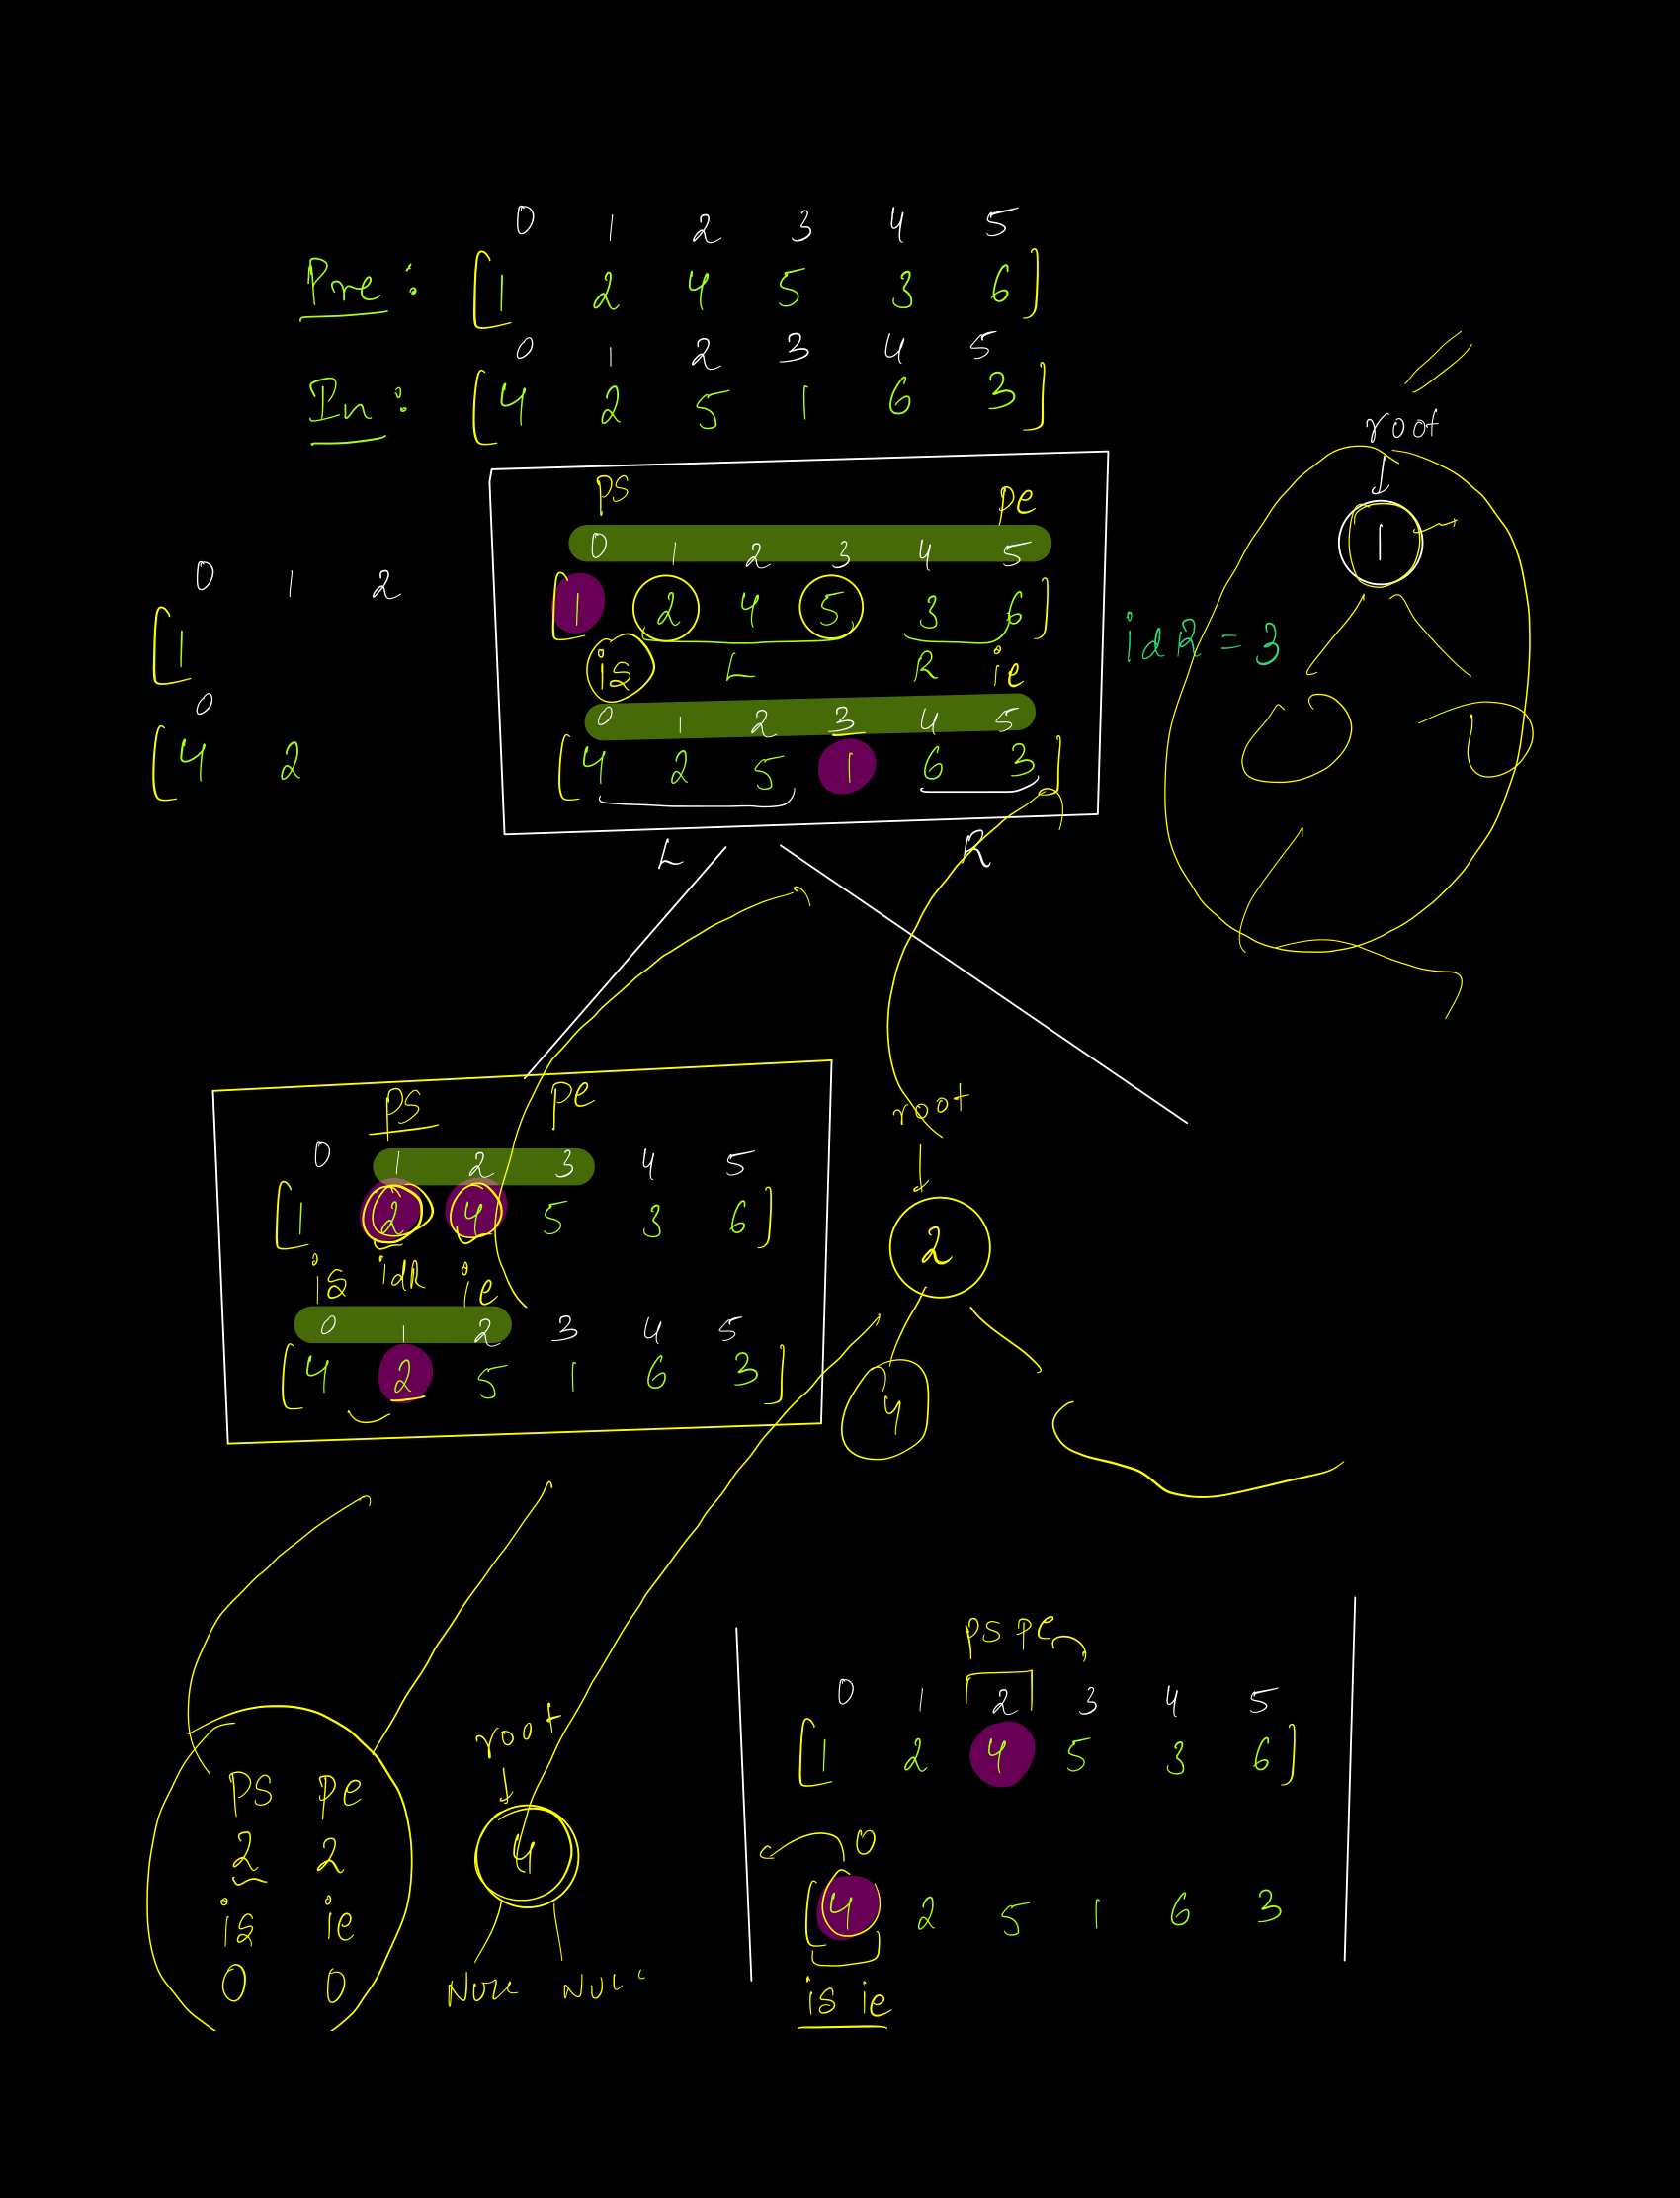 0 1 2 3 4 5
Pre : [ 1 2 4 5 3 6 ]
0 1 2 3 4 5
In : [ 4 2 5 1 6 3 ]
root
1
ps pe
0 1 2 3 4 5
[ 1 2 4 5 3 6 ]
is L R ie
0 1 2 3 4 5
[ 4 2 5 1 6 3 ]
idR = 3
0 1 2
[ 1
0
[ 4 2
L R
ps pe
0 1 2 3 4 5
[ 1 2 4 5 3 6 ]
is idR ie
0 1 2 3 4 5
[ 4 2 5 1 6 3 ]
root
2
4
ps pe
2 2
is ie
0 0
root
4
NULL NULL
ps pe
0 1 2 3 4 5
[ 1 2 4 5 3 6 ]
0
[ 4 2 5 1 6 3
is ie